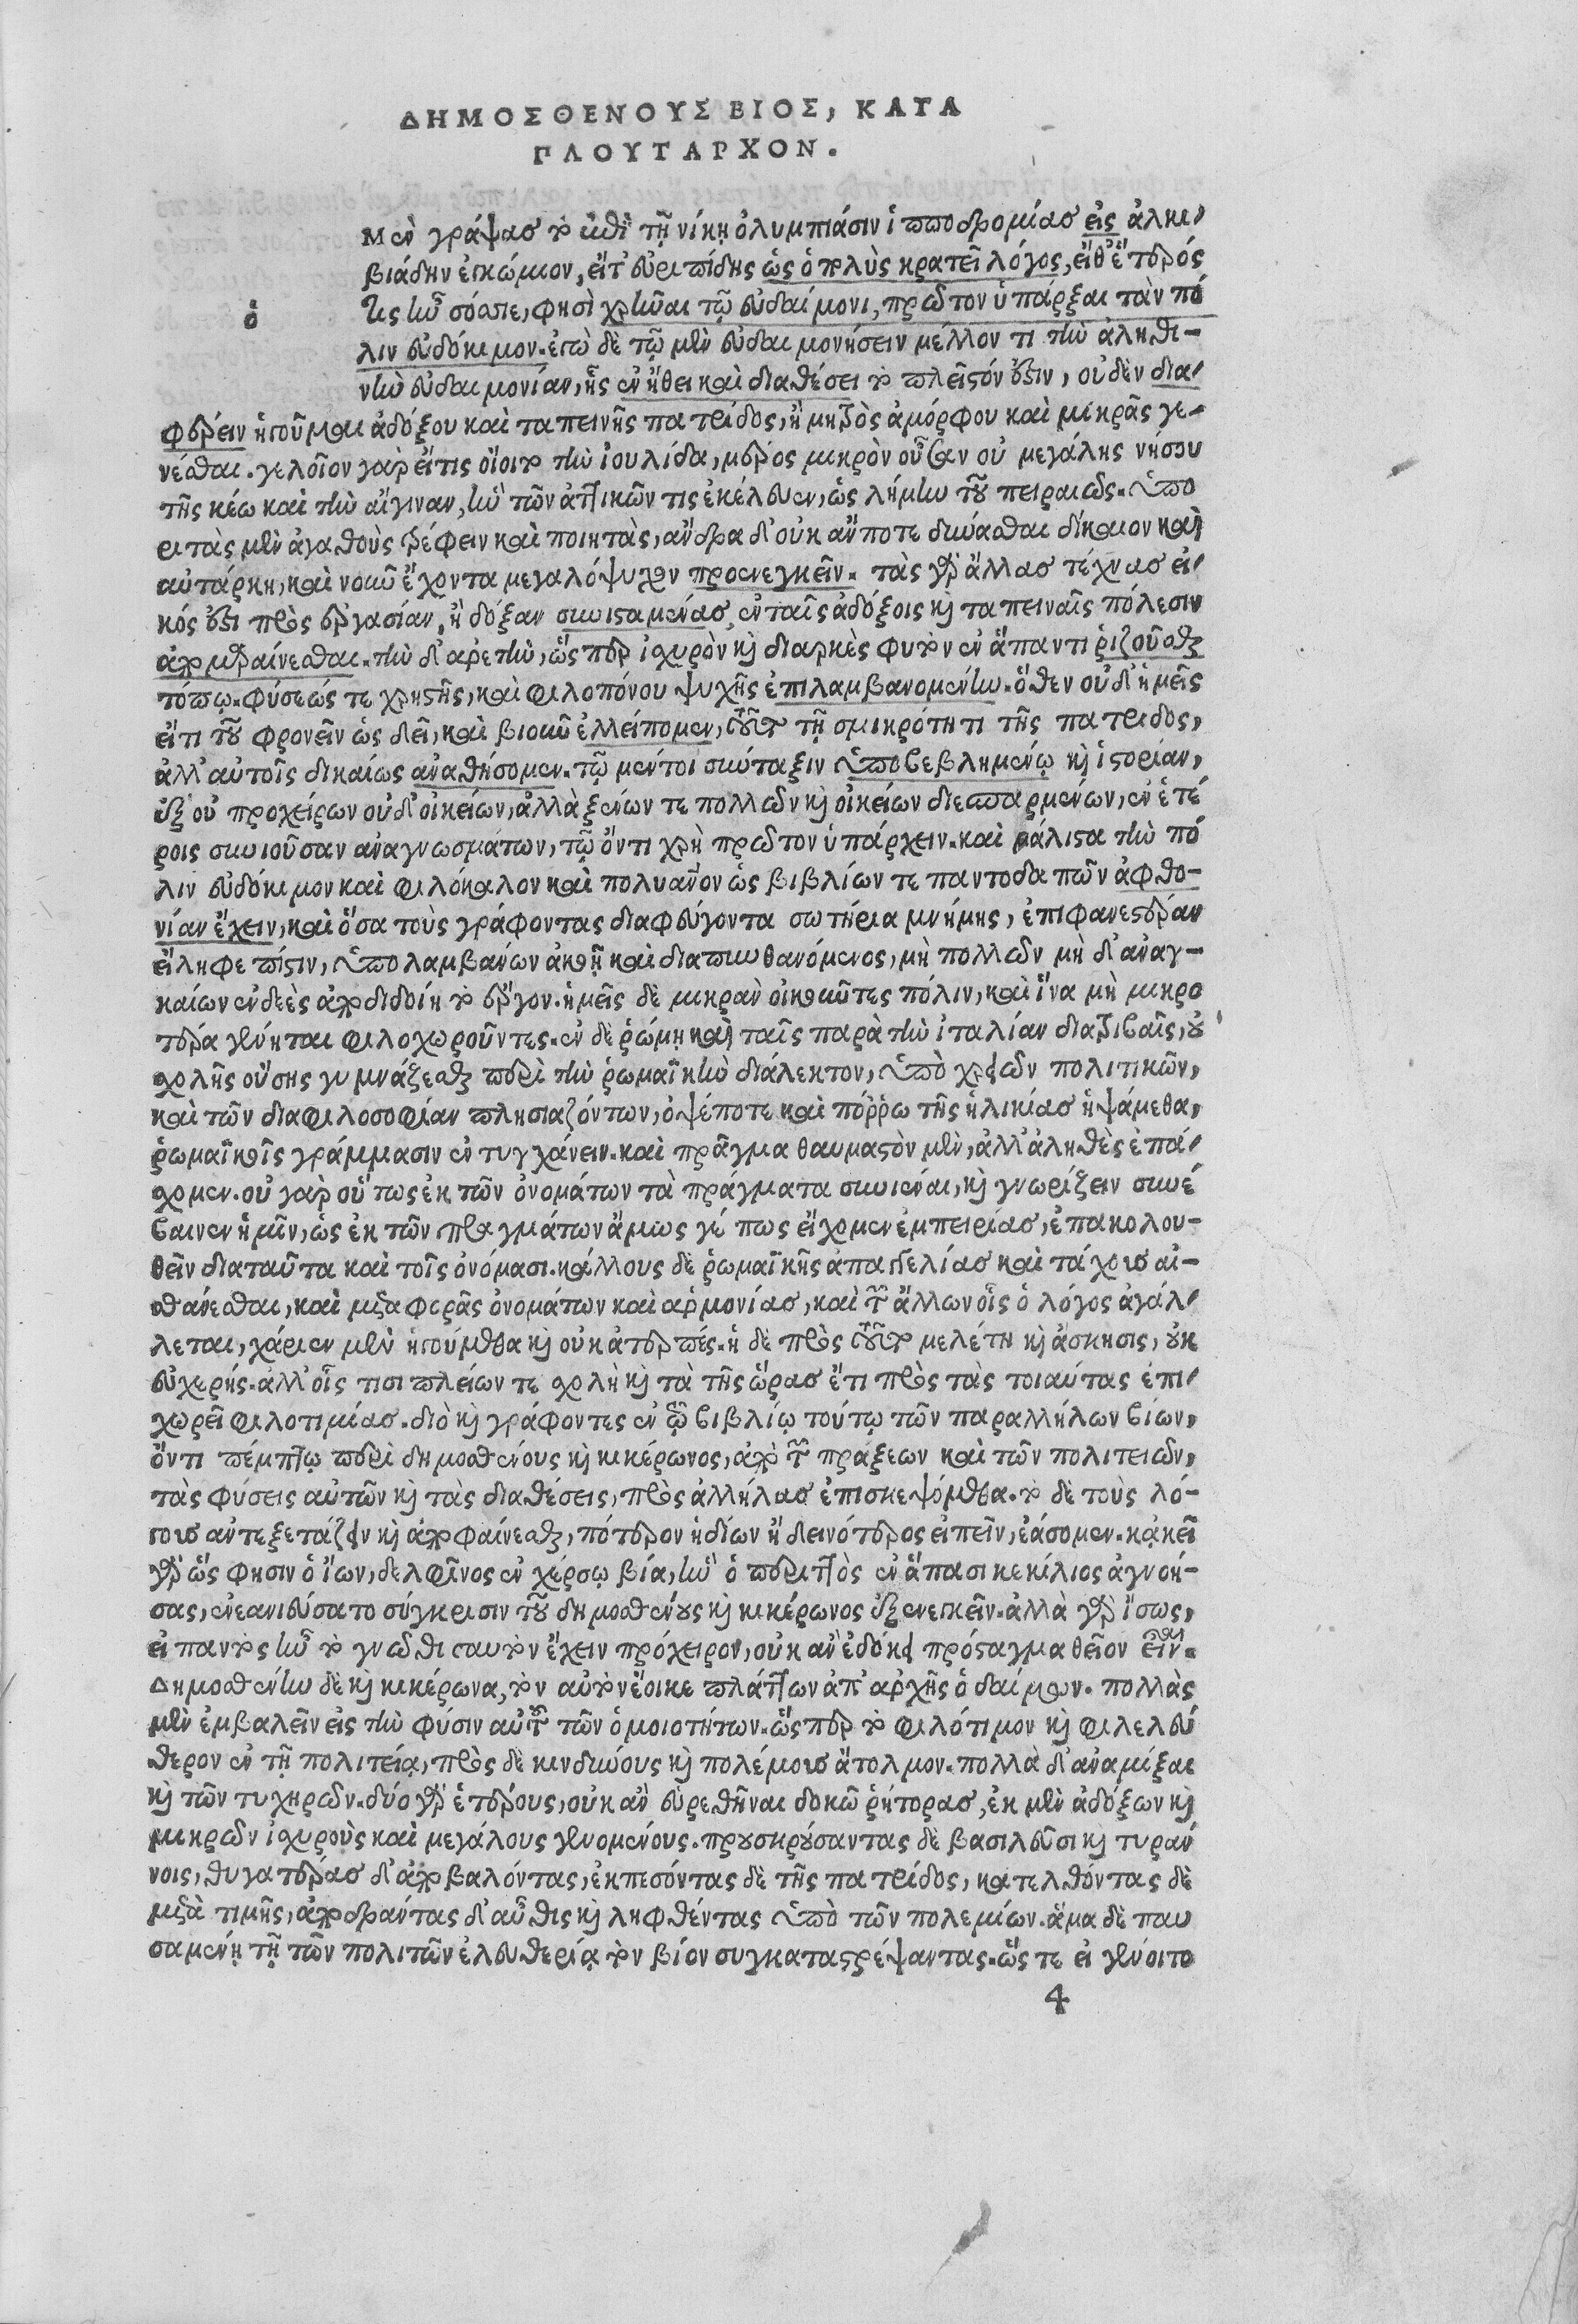 ΔΗΜΟΣΘΕΝΟΥΣ ΒΙΟΣ, ΚΑΤΑ
ΠΛΟΥΤΑΡΧΟΝ.
Μὲν γράψας τὸ ἐπὶ τῇ νίκῃ ὀλυμπιάσιν ἱπποδρομίας εἰς ἀλκι-
βιάδην ἐγκώμιον, εἴτ' εὐριπίδης ὡς ὁ πολὺς κρατεῖ λόγος, εἴθ' ἕτερός
ὁ τις ἦν σόσσιε, φησὶ χρῆναι τῷ εὐδαίμονι, πρῶτον ὑπάρξαι τὰν πό
λιν εὐδόκιμον. ἐγὼ δὲ τῷ μὲν εὐδαιμονήσειν μέλλον τι τὴν ἀληθι-
νὴν εὐδαιμονίαν, ἧς ἐν ἤθει καὶ διαθέσει τὸ πλεῖστόν ἐστιν, οὐδὲν δια-
φέρειν ἡγοῦμαι ἀδόξου καὶ ταπεινῆς πατρίδος, ἢ μητρὸς ἀμόρφου καὶ μικρᾶς γε-
νέσθαι. γελοῖον γὰρ εἴτις οἴοιτο τὴν ἰουλίδα, μέρος μικρὸν οὖσαν οὐ μεγάλης νήσου
τῆς κέω καὶ τὴν αἴγιναν, ἣν τῶν ἀττικῶν τις ἐκέλευεν, ὡς λήμην τοῦ πειραιῶς. ὑπο
ριτὰς μὲν ἀγαθοὺς τρέφειν καὶ ποιητὰς, ἄνδρα δ' οὐκ ἄν ποτε δύνασθαι δίκαιον καὶ
αὐτάρκη, καὶ νοῦν ἔχοντα μεγαλόψυχον προενεγκεῖν. τὰς γὰρ ἄλλας τέχνας εἰ-
κός ἐστι πρὸς ἐργασίαν, ἢ δόξαν συνισταμένας, ἐν ταῖς ἀδόξοις καὶ ταπειναῖς πόλεσιν
ἀπομαραίνεσθαι. τὴν δ' ἀρετὴν, ὥσπερ ἰσχυρὸν καὶ διαρκὲς φυτὸν ἐν ἅπαντι ῥιζοῦσθαι
τόπῳ. φύσεώς τε χρηστῆς, καὶ φιλοπόνου ψυχῆς ἐπιλαμβανομένην. ὅθεν οὐδ' ἡμεῖς
εἴ τι τοῦ φρονεῖν ὡς δεῖ, καὶ βιοῦν ἐλλείπομεν, τοῦτο τῇ σμικρότητι τῆς πατρίδος,
ἀλλ' αὐτοῖς δικαίως ἀναθήσομεν. τῷ μέντοι σύνταξιν ὑποβεβλημένῳ καὶ ἱστορίαν,
ἐξ οὐ προχείρων οὐδ' οἰκείων, ἀλλὰ ξένων τε πολλῶν καὶ οἰκείων διεσπαρμένων, ἐν ἑτέ
ροις συνιοῦσαν ἀναγνωσμάτων, τῷ ὄντι χρὴ πρῶτον ὑπάρχειν. καὶ μάλιστα τὴν πό
λιν εὐδόκιμον καὶ φιλόκαλον καὶ πολυάνθρωπον ὡς βιβλίων τε παντοδαπῶν ἀφθο-
νίαν ἔχειν, καὶ ὅσα τοὺς γράφοντας διαφεύγοντα σωτήρια μνήμης, ἐπιφανεστέραν
εἴληφε πίστιν, ὑπολαμβάνων ἀκοῇ καὶ διαπυνθανόμενος, μὴ πολλῶν μὴ δ' ἀναγ-
καίων ἐνδεὲς ἀποδιδοίη τὸ ἔργον. ἡμεῖς δὲ μικρὰν οἰκοῦντες πόλιν, καὶ ἵνα μὴ μικρο
τέρα γένηται φιλοχωροῦντες. ἐν δὲ ῥώμῃ καὶ ταῖς παρὰ τὴν ἰταλίαν διατριβαῖς, οὐ
σχολῆς οὔσης γυμνάζεσθαι περὶ τὴν ῥωμαϊκὴν διάλεκτον, ὑπὸ χρειῶν πολιτικῶν,
καὶ τῶν διαφιλοσοφίαν πλησιαζόντων, ὀψέποτε καὶ πόῤῥω τῆς ἡλικίας ἠψάμεθα,
ῥωμαϊκοῖς γράμμασιν ἐντυγχάνειν. καὶ πρᾶγμα θαυμαστὸν μὲν, ἀλλ' ἀληθὲς ἐπά-
σχομεν. οὐ γὰρ οὕτως ἐκ τῶν ὀνομάτων τὰ πράγματα συνιέναι, καὶ γνωρίζειν συνέ
βαινεν ἡμῖν, ὡς ἐκ τῶν πραγμάτων ἄμως γέ πως εἴχομεν ἐμπειρίας, ἐπακολου-
θεῖν διαταῦτα καὶ τοῖς ὀνόμασι. κάλλους δὲ ῥωμαϊκῆς ἀπαγγελίας καὶ τάχους αἰ-
σθάνεσθαι, καὶ μεταφορᾶς ὀνομάτων καὶ ἁρμονίας, καὶ τῶν ἄλλων οἷς ὁ λόγος ἀγάλ-
λεται, χάριεν μὲν ἡγούμεθα καὶ οὐκ ἀτερπές. ἡ δὲ πρὸς τοῦτο μελέτη καὶ ἄσκησις, οὐκ
εὐχερής. ἀλλ' οἷς τισι πλείων τε σχολὴ καὶ τὰ τῆς ὥρας ἔτι πρὸς τὰς τοιαύτας ἐπι-
χωρεῖ φιλοτιμίας. διὸ καὶ γράφοντες ἐν τῷ βιβλίῳ τούτῳ τῶν παραλλήλων βίων,
ὄντι πέμπτῳ περὶ δημοσθένους καὶ κικέρωνος, ἀπὸ τῶν πράξεων καὶ τῶν πολιτειῶν,
τὰς φύσεις αὐτῶν καὶ τὰς διαθέσεις, πρὸς ἀλλήλας ἐπισκεψόμεθα. τὸ δὲ τοὺς λό-
γους ἀντεξετάζειν καὶ ἀποφαίνεσθαι, πότερον ἡδίων ἢ δεινότερος εἰπεῖν, ἐάσομεν. κἀκεῖ
γὰρ ὥς φησιν ὁ ἴων, δελφῖνος ἐν χέρσῳ βία, ἣν ὁ περιττὸς ἐν ἅπασι κεκίλιος ἀγνοή-
σας, ἐνεανιεύσατο σύγκρισιν τοῦ δημοσθένους καὶ κικέρωνος ἐξενεγκεῖν. ἀλλὰ γὰρ ἴσως,
εἰ παντὸς ἦν τὸ γνῶθι σαυτὸν ἔχειν πρόχειρον, οὐκ ἂν ἐδόκει πρόσταγμα θεῖον εἶναι.
Δημοσθένην δὲ καὶ κικέρωνα, τὸν αὐτὸν ἔοικε πλάττων ἀπ' ἀρχῆς ὁ δαίμων. πολλὰς
μὲν ἐμβαλεῖν εἰς τὴν φύσιν αὐτῶν τῶν ὁμοιοτήτων. ὥσπερ τὸ φιλότιμον καὶ φιλελεύ
θερον ἐν τῇ πολιτείᾳ, πρὸς δὲ κινδύνους καὶ πολέμους ἄτολμον. πολλὰ δ' ἀναμίξαι
καὶ τῶν τυχηρῶν. δύο γὰρ ἑτέρους, οὐκ ἂν εὑρεθῆναι δοκῶ ῥήτορας, ἐκ μὲν ἀδόξων καὶ
μικρῶν ἰσχυροὺς καὶ μεγάλους γενομένους. προυσκρούσαντας δὲ βασιλεῦσι καὶ τυράν
νοις, θυγατέρας δ' ἀποβαλόντας, ἐκπεσόντας δὲ τῆς πατρίδος, κατελθόντας δὲ
μετὰ τιμῆς, ἀποδράντας δ' αὖθις καὶ ληφθέντας ὑπὸ τῶν πολεμίων. ἅμα δὲ παυ
σαμένῃ τῇ τῶν πολιτῶν ἐλευθερίᾳ τὸν βίον συγκαταστρέψαντας. ὥστε εἰ γένοιτο
4